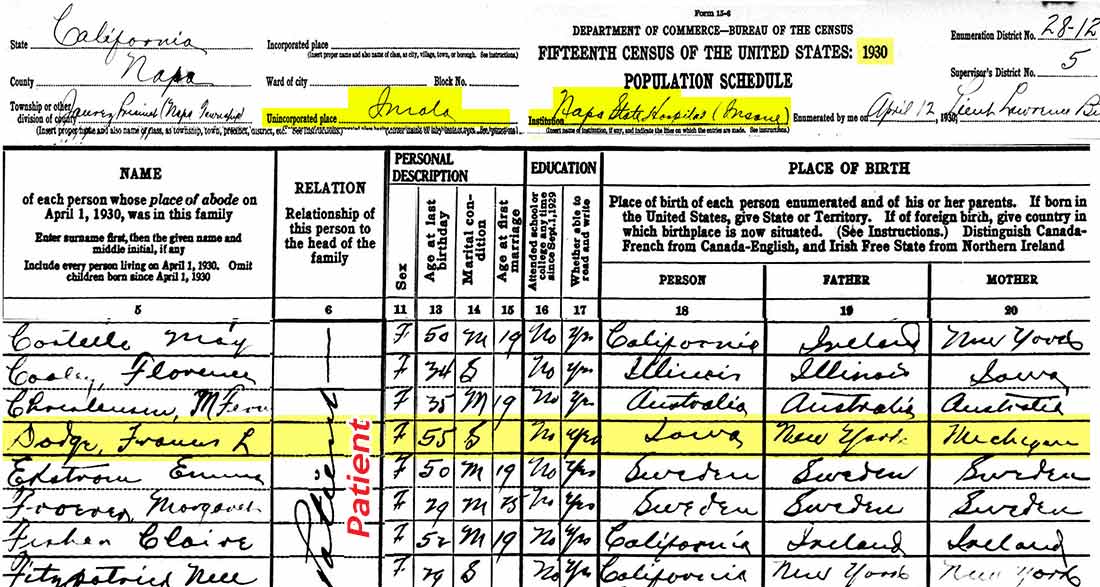 Form 15-6
State California
Incorporated place
(Insert proper name and also name of class, as city, village, town, or borough. See instructions.)
DEPARTMENT OF COMMERCE—BUREAU OF THE CENSUS
Enumeration District No. 28-12
County Napa
Ward of city Block No.
FIFTEENTH CENSUS OF THE UNITED STATES: 1930
POPULATION SCHEDULE
Supervisor's District No. 5
Township or other division of county (Napa Township)
Unincorporated place Imola
Institution Napa State Hospital (Insane)
Enumerated by me on April 12, 1930, Lawrence
(Insert name of institution, if any, and indicate the lines on which the entries are made. See instructions.)
NAME
of each person whose place of abode on
April 1, 1930, was in this family
Enter surname first, then the given name and
middle initial, if any
Include every person living on April 1, 1930. Omit
children born since April 1, 1930
RELATION
Relationship of
this person to
the head of the
family
PERSONAL
DESCRIPTION
Sex
Age at last
birthday
Marital con-
dition
Age at first
marriage
EDUCATION
Attended school or
college any time
since Sept. 1, 1929
Whether able to
read and write
PLACE OF BIRTH
Place of birth of each person enumerated and of his or her parents. If born in
the United States, give State or Territory. If of foreign birth, give country in
which birthplace is now situated. (See Instructions.) Distinguish Canada-
French from Canada-English, and Irish Free State from Northern Ireland
PERSON FATHER MOTHER
5 6 11 13 14 15 16 17 18 19 20
May — F 50 M 19 No Yes California Ireland New York
Cooley, Florence F 34 S No Yes Illinois Illinois Iowa
F 35 M 19 No Yes Australia Australia Australia
Dodge, Frances L F 55 S No Yes Iowa New York Michigan
Edstrom Emma F 50 M 19 No Yes Sweden Sweden Sweden
F 29 M 25 No Yes Sweden Sweden Sweden
Fisher Claire F 52 M 19 No Yes California Ireland Ireland
Fitzpatrick Nell F 29 S No Yes California New York New York
Patient
Patient